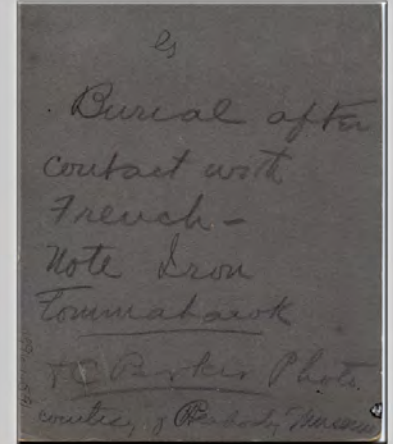 Burial after
contact with
French –
Note Iron
Tommahawk
Parker Photo
courtesy of Peabody Museum